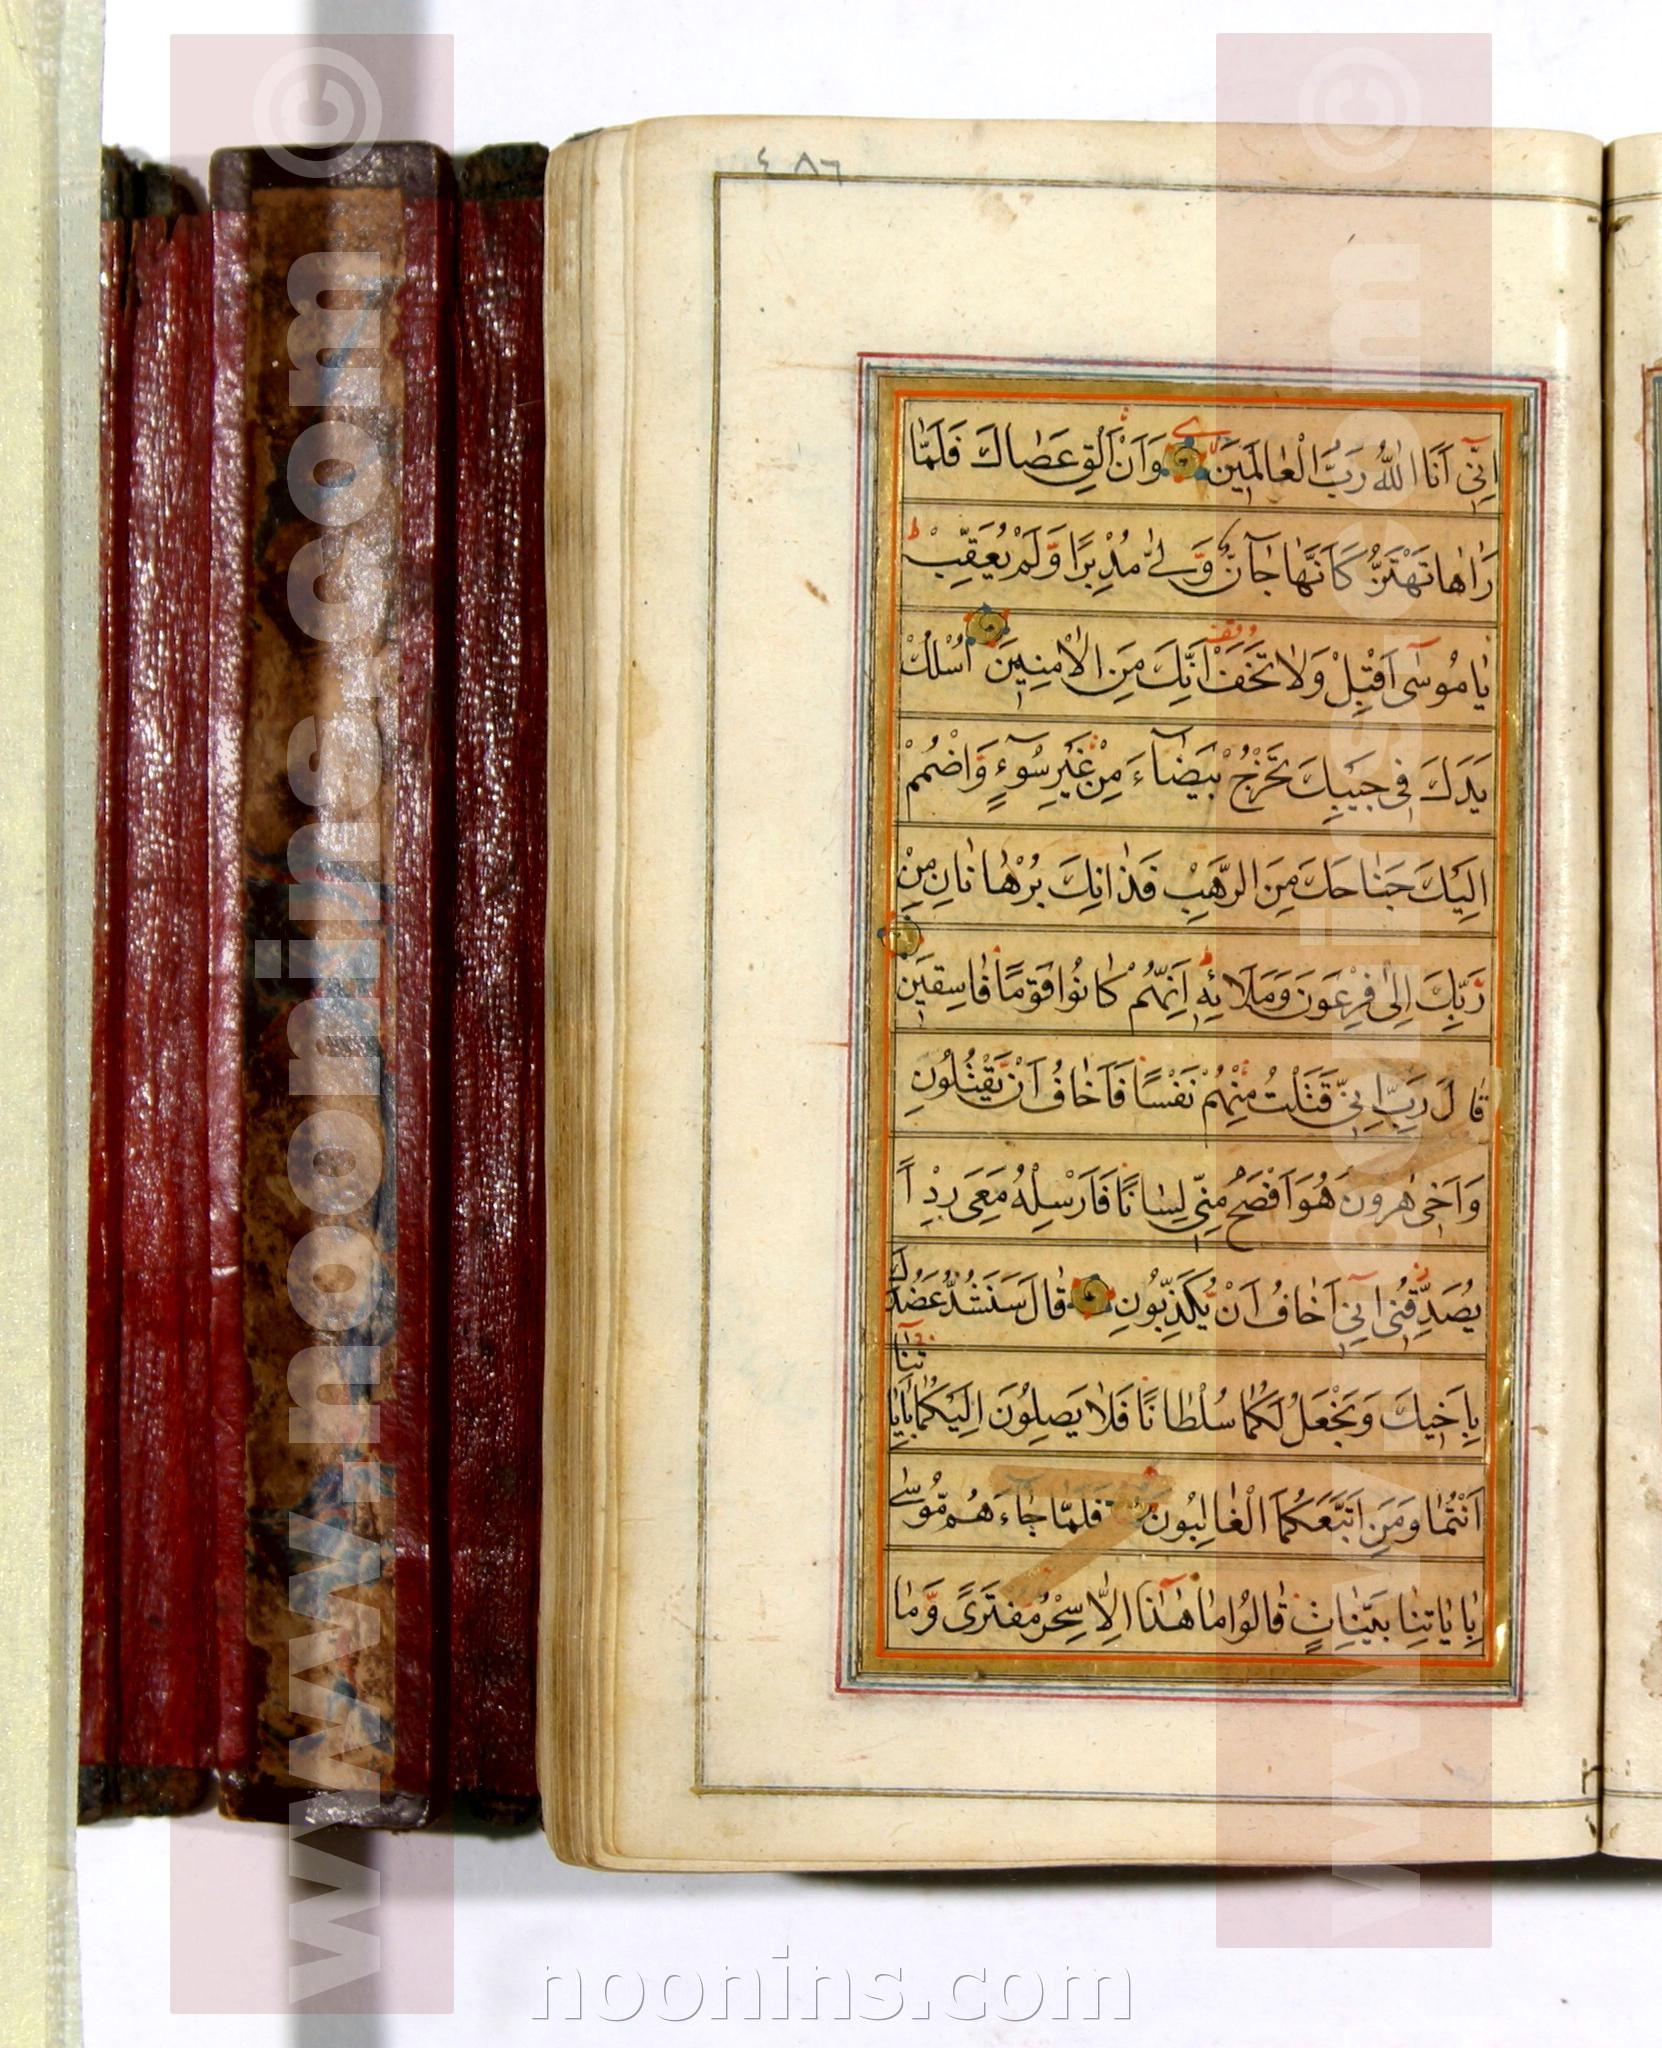 ٤٨٦
اِنّٖى اَنَا اللّٰهُ رَبُّ الْعٰالَمٖينَ وَاَنْ اَلْقِ عَصٰاكَ فَلَمّٰا
رَاٰهٰا تَهْتَزُّ كَاَنَّهٰا جٰآنٌّ وَلّٰى مُدْبِرًا وَلَمْ يُعَقِّبْ
يٰا مُوسٰٓى اَقْبِلْ وَلٰا تَخَفْ اِنَّكَ مِنَ الْاٰمِنٖينَ اُسْلُكْ
يَدَكَ فٖى جَيْبِكَ تَخْرُجْ بَيْضٰٓاءَ مِنْ غَيْرِ سُوٓءٍ وَاضْمُمْ
اِلَيْكَ جَنٰاحَكَ مِنَ الرَّهَبِ فَذٰانِكَ بُرْهٰانٰانِ مِنْ
رَبِّكَ اِلٰى فِرْعَوْنَ وَمَلَائِهٖ اِنَّهُمْ كٰانُوا قَوْمًا فٰاسِقٖينَ
قٰالَ رَبِّ اِنّٖى قَتَلْتُ مِنْهُمْ نَفْسًا فَاَخٰافُ اَنْ يَقْتُلُونِ
وَاَخٖى هٰرُونُ هُوَ اَفْصَحُ مِنّٖى لِسٰانًا فَاَرْسِلْهُ مَعِىَ رِدْاً
يُصَدِّقُنٖى اِنّٖٓى اَخٰافُ اَنْ يُكَذِّبُونِ قٰالَ سَنَشُدُّ عَضُدَكَ
بِاَخٖيكَ وَنَجْعَلُ لَكُمٰا سُلْطٰانًا فَلٰا يَصِلُونَ اِلَيْكُمٰا بِاٰيٰاتِنٰٓا
اَنْتُمٰا وَمَنِ اتَّبَعَكُمَا الْغٰالِبُونَ فَلَمّٰا جٰٓاءَهُمْ مُوسٰى
بِاٰيٰاتِنٰا بَيِّنٰاتٍ قٰالُوا مٰا هٰذٰٓا اِلّٰا سِحْرٌ مُفْتَرًى وَمٰا
www.noonins.com ©
www.noonins.com ©
noonins.com